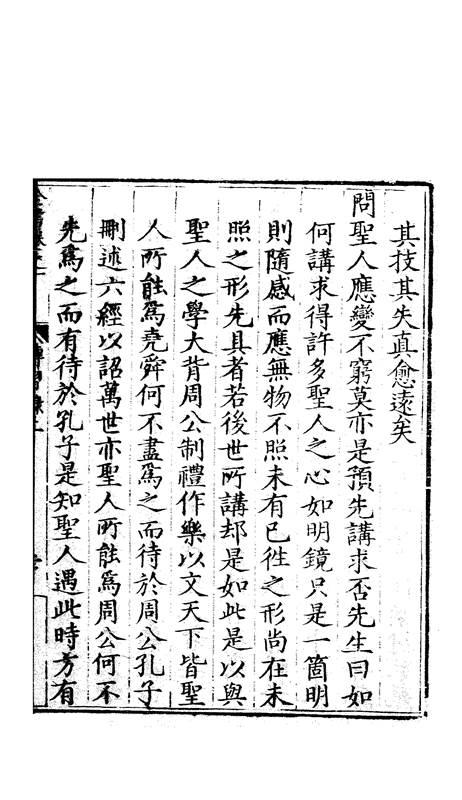 其技其失真愈遠矣
問聖人應變不窮莫亦是預先講求否先生曰如
何講求得許多聖人之心如明鏡只是一箇明
則隨感而應無物不照未有已徃之形尚在未
照之形先具者若後世所講却是如此是以與
聖人之學大背周公制禮作樂以文天下皆聖
人所能爲堯舜何不盡爲之而待於周公孔子
刪述六經以詔萬世亦聖人所能爲周公何不
先爲之而有待於孔子是知聖人遇此時方有